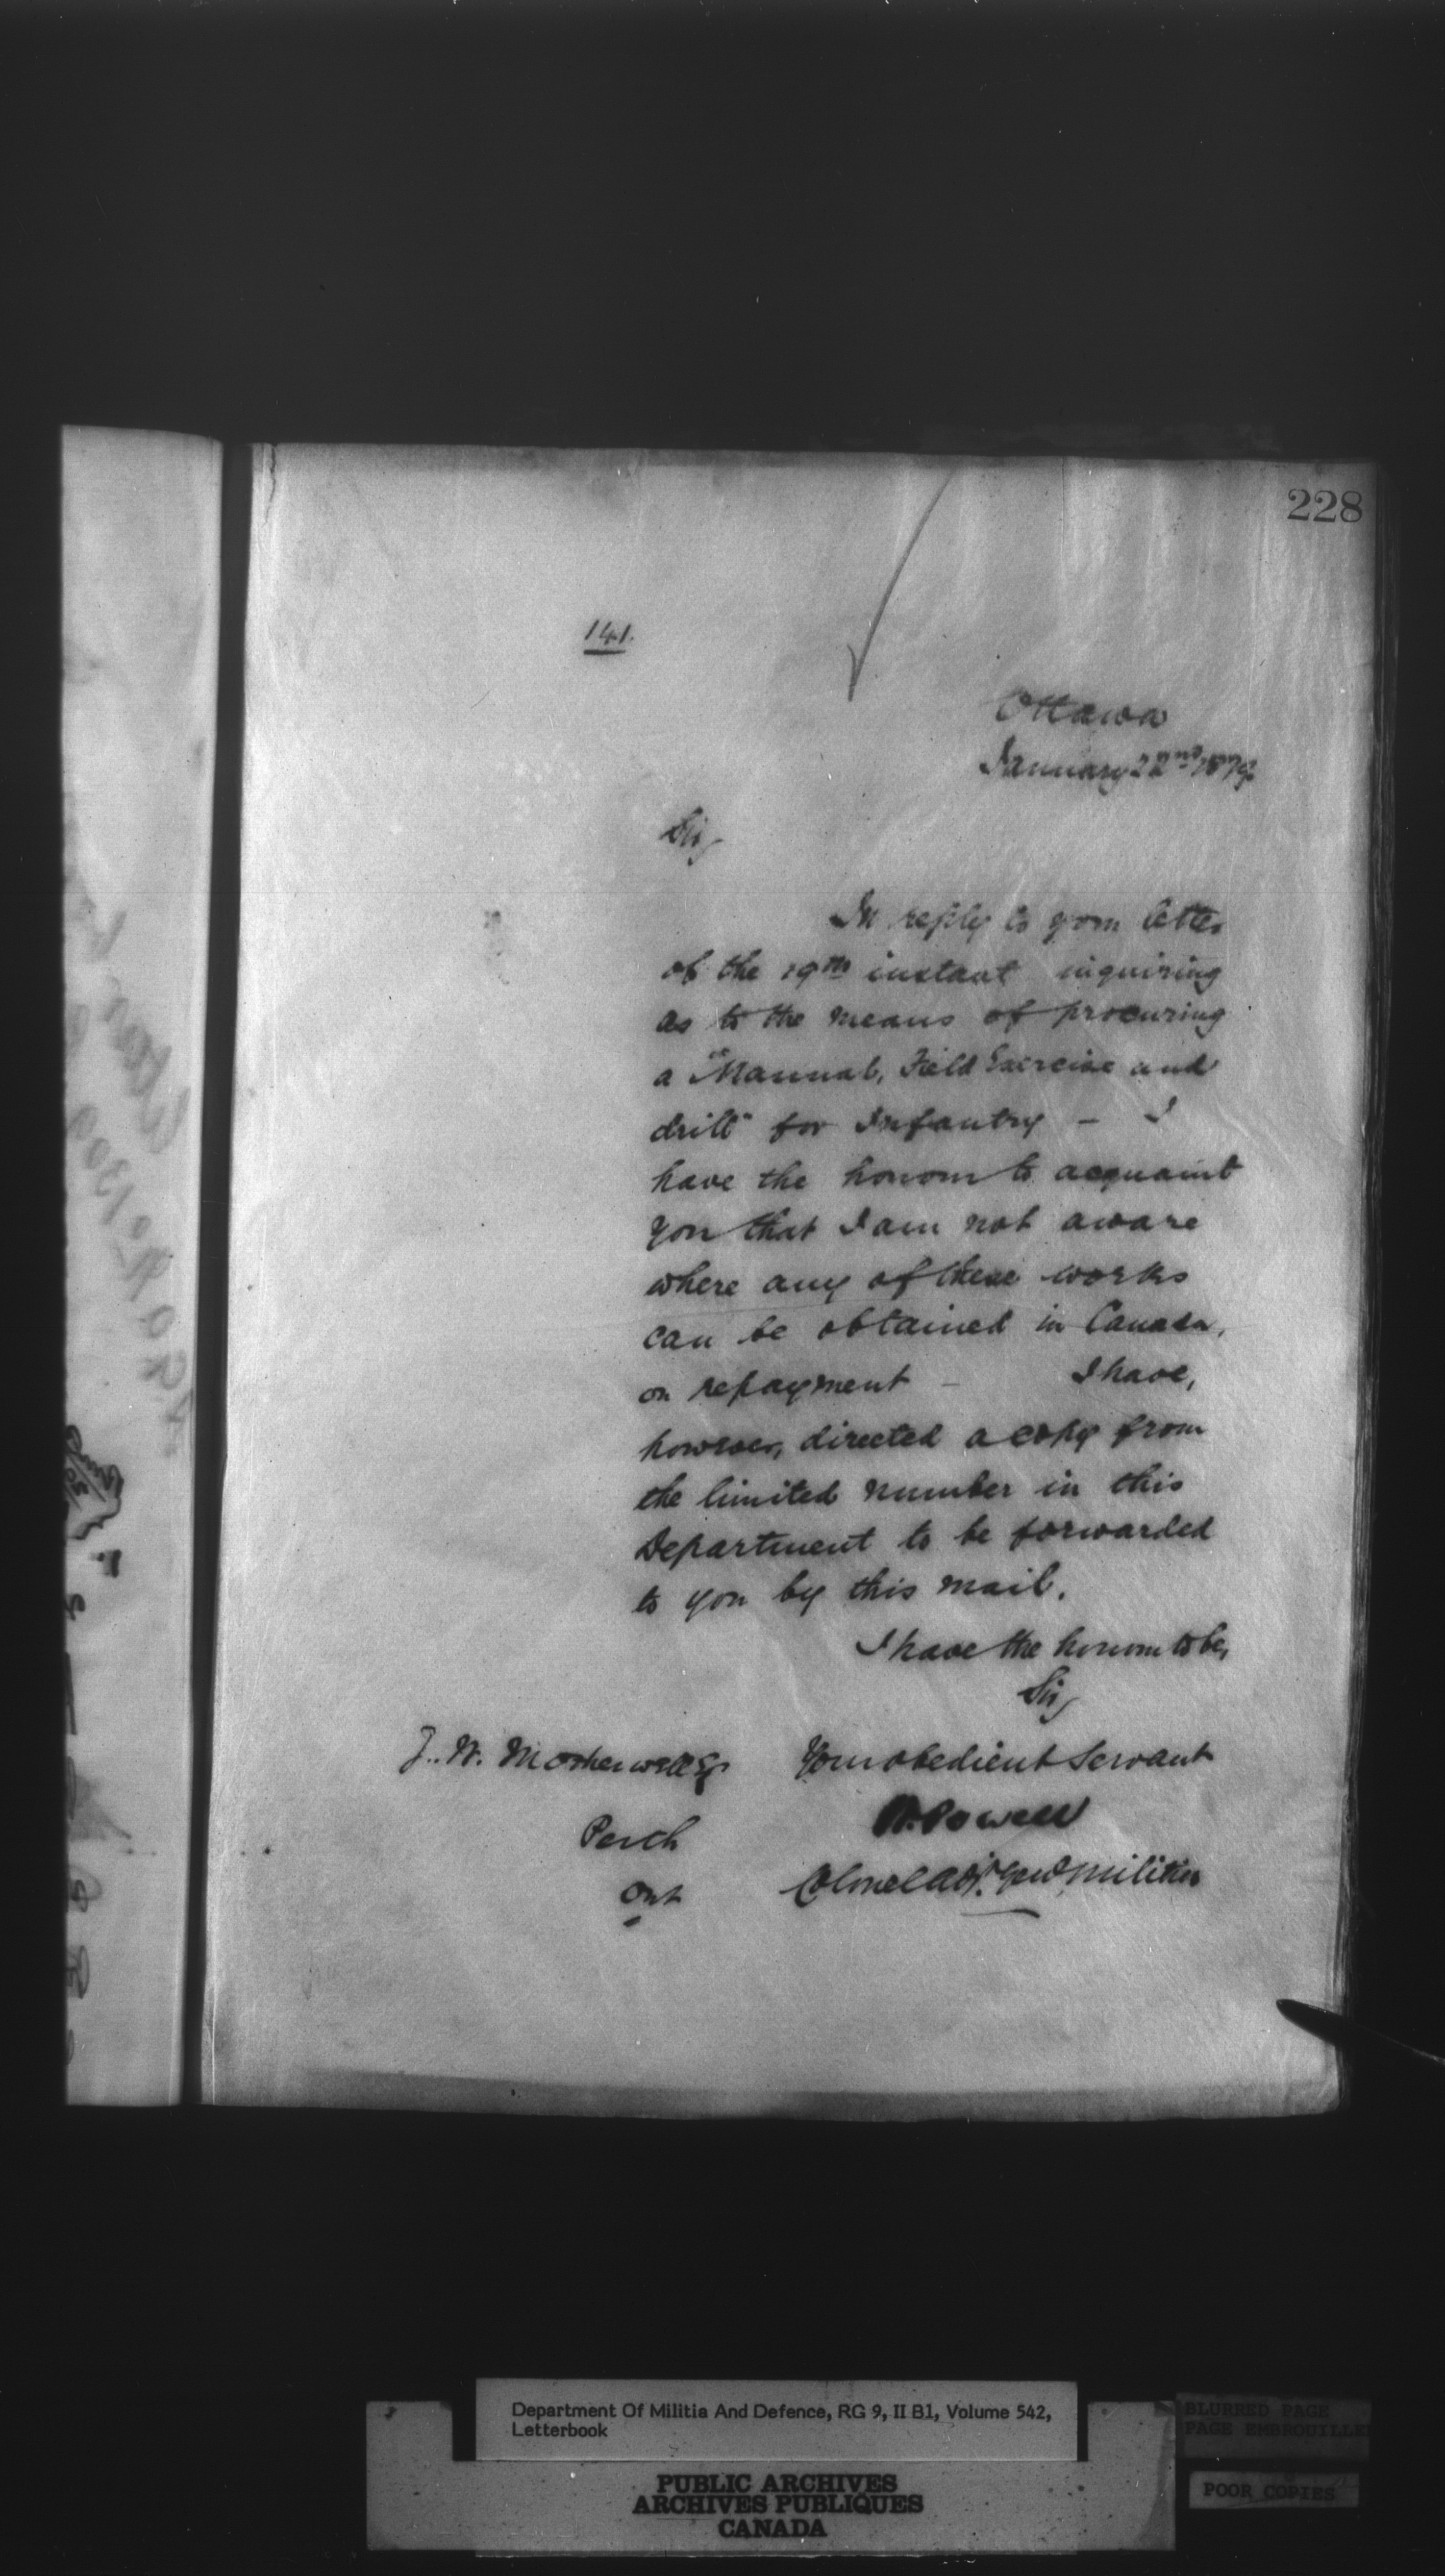 228
141.
Ottawa
January 22nd 1879.
Sir,
In reply to your letter
of the 19th instant inquiring
as to the means of procuring
a "Manual, Field Exercise and
drill" for Infantry - I
have the honour to acquaint
you that I am not aware
where any of these works
can be obtained in Canada,
on repayment - I have,
however, directed a copy from
the limited number in this
Department to be forwarded
to you by this mail.
I have the honour to be,
Sir,
Your obedient Servant
J. W. Motherwell Esq
W. Powell
Perch
Colonel Adjt. Genl Militia
Ont
Department Of Militia And Defence, RG 9, II B1, Volume 542,
Letterbook
PUBLIC ARCHIVES
ARCHIVES PUBLIQUES
CANADA
BLURRED PAGE
PAGE EMBROUILLE
POOR COPIES